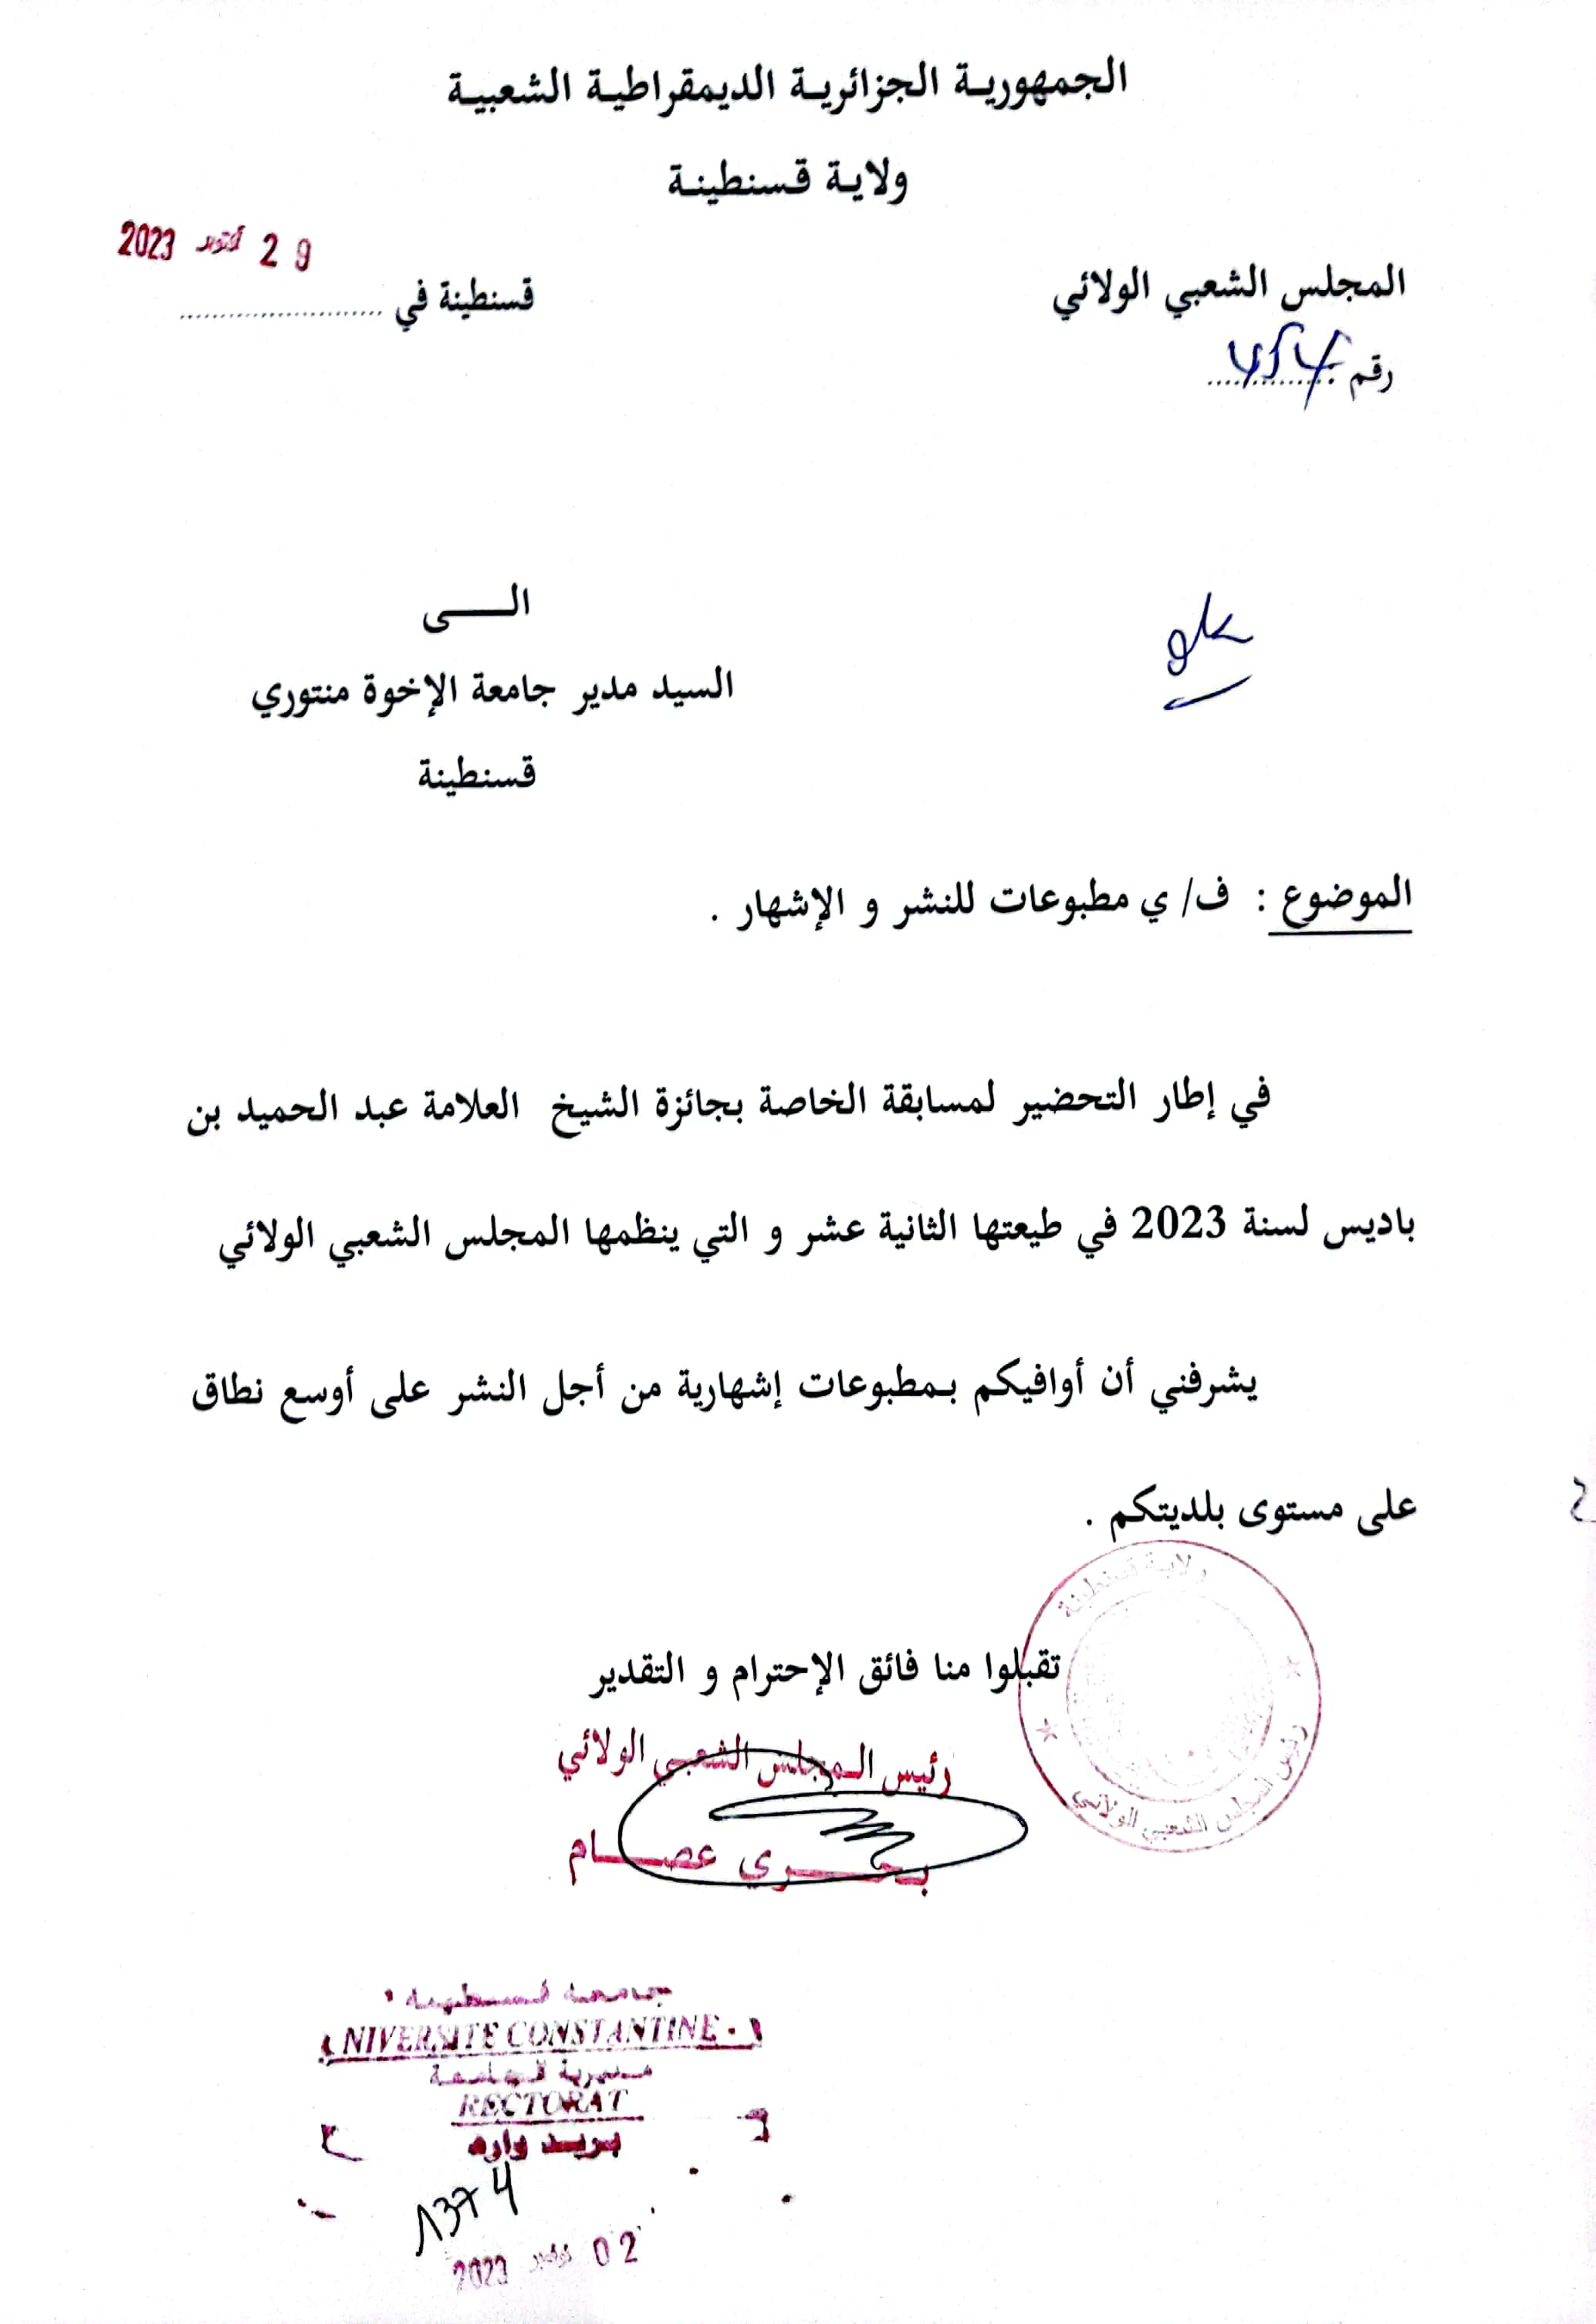 الجمهورية الجزائرية الديمقراطية الشعبية
ولاية قسنطينة
المجلس الشعبي الولائي
29 أكتوبر 2023
قسنطينة في ........................
رقم
الـــــى
السيد مدير جامعة الإخوة منتوري
قسنطينة
الموضوع : ف/ ي مطبوعات للنشر و الإشهار .
في إطار التحضير لمسابقة الخاصة بجائزة الشيخ العلامة عبد الحميد بن
باديس لسنة 2023 في طيعتها الثانية عشر و التي ينظمها المجلس الشعبي الولائي
يشرفني أن أوافيكم بـمطبوعات إشهارية من أجل النشر على أوسع نطاق
على مستوى بلديتكم .
ولاية قسنطينة
رئيس المجلس الشعبي الولائي
تقبلوا منا فائق الإحترام و التقدير
رئيس الـمجلس الشعبي الولائي
بـحـــــري عصـــــام
جامعة قسنطينة 1
UNIVERSITE CONSTANTINE - 1
مديرية الجامعة
RECTORAT
بريد وارد
1374
02 نوفمبر 2023